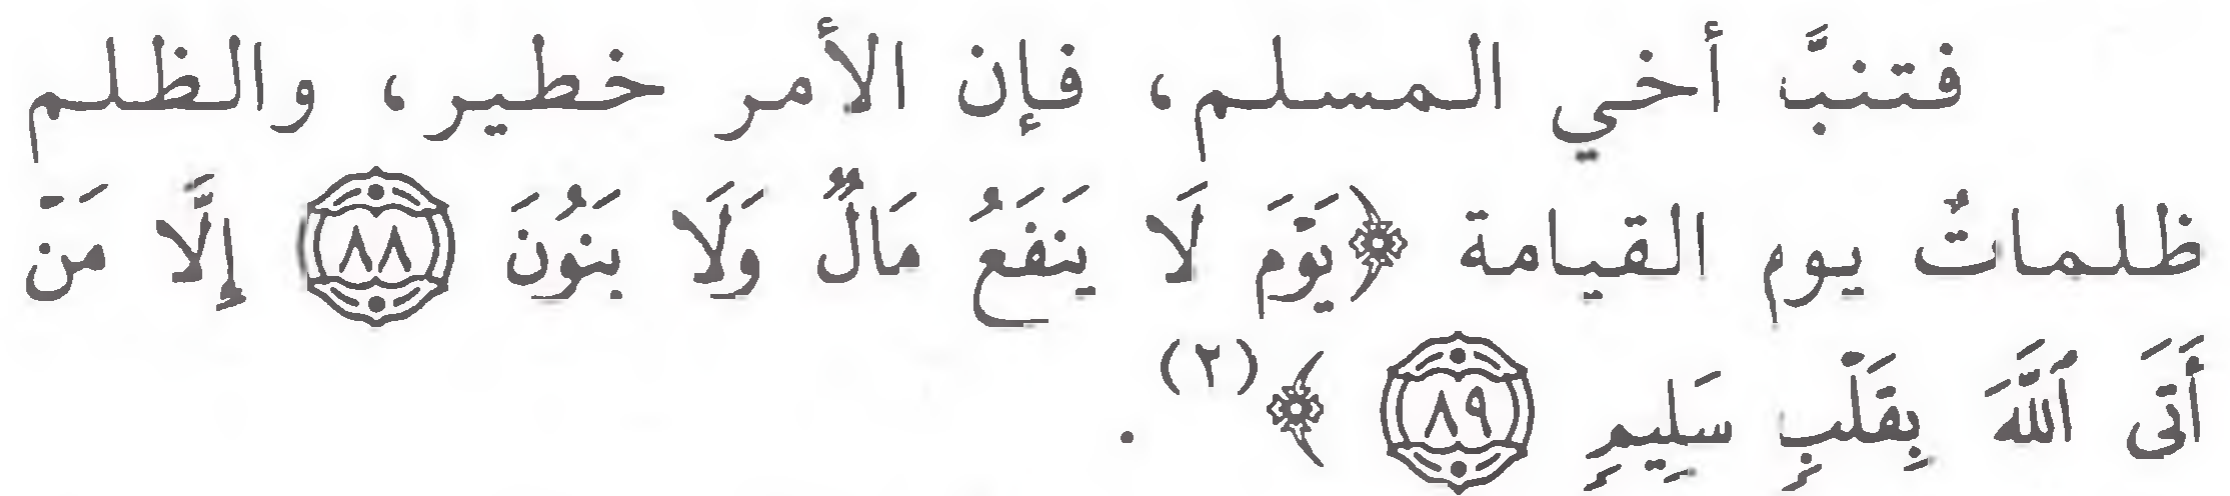 فتنبَّ أخي المسلم، فإن الأمر خطير، والظلم
ظلماتٌ يوم القيامة ﴿يَوْمَ لَا يَنفَعُ مَالٌ وَلَا بَنُونَ ٨٨ إِلَّا مَنْ
أَتَى ٱللَّهَ بِقَلْبٍ سَلِيمٍ ٨٩﴾(٢).